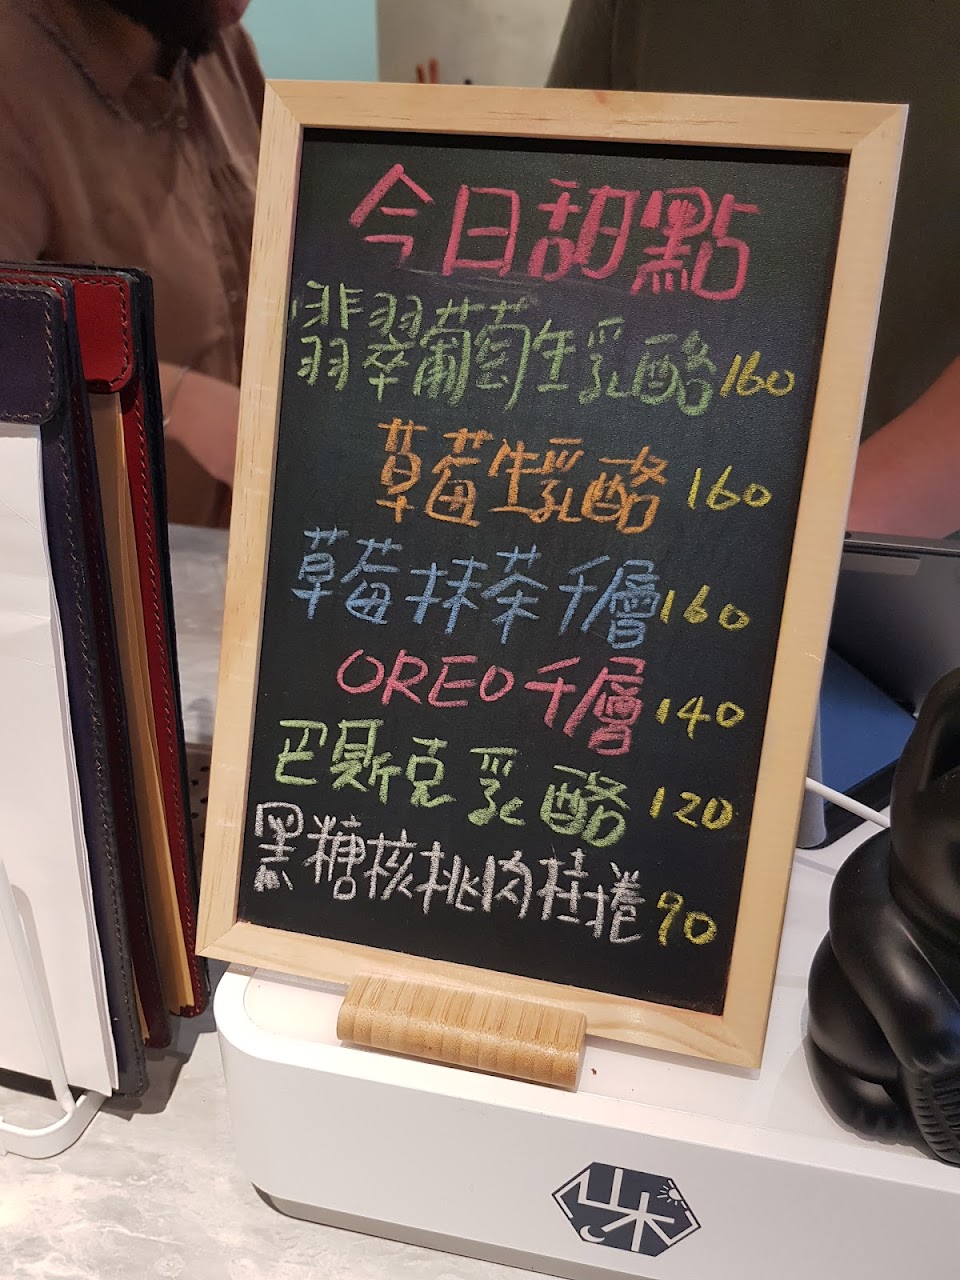 今日甜點
翡翠葡萄生乳酪 160
草莓生乳酪 160
草莓抹茶千層 160
OREO千層 140
巴斯克乳酪 120
黑糖核桃肉桂捲 90
山木